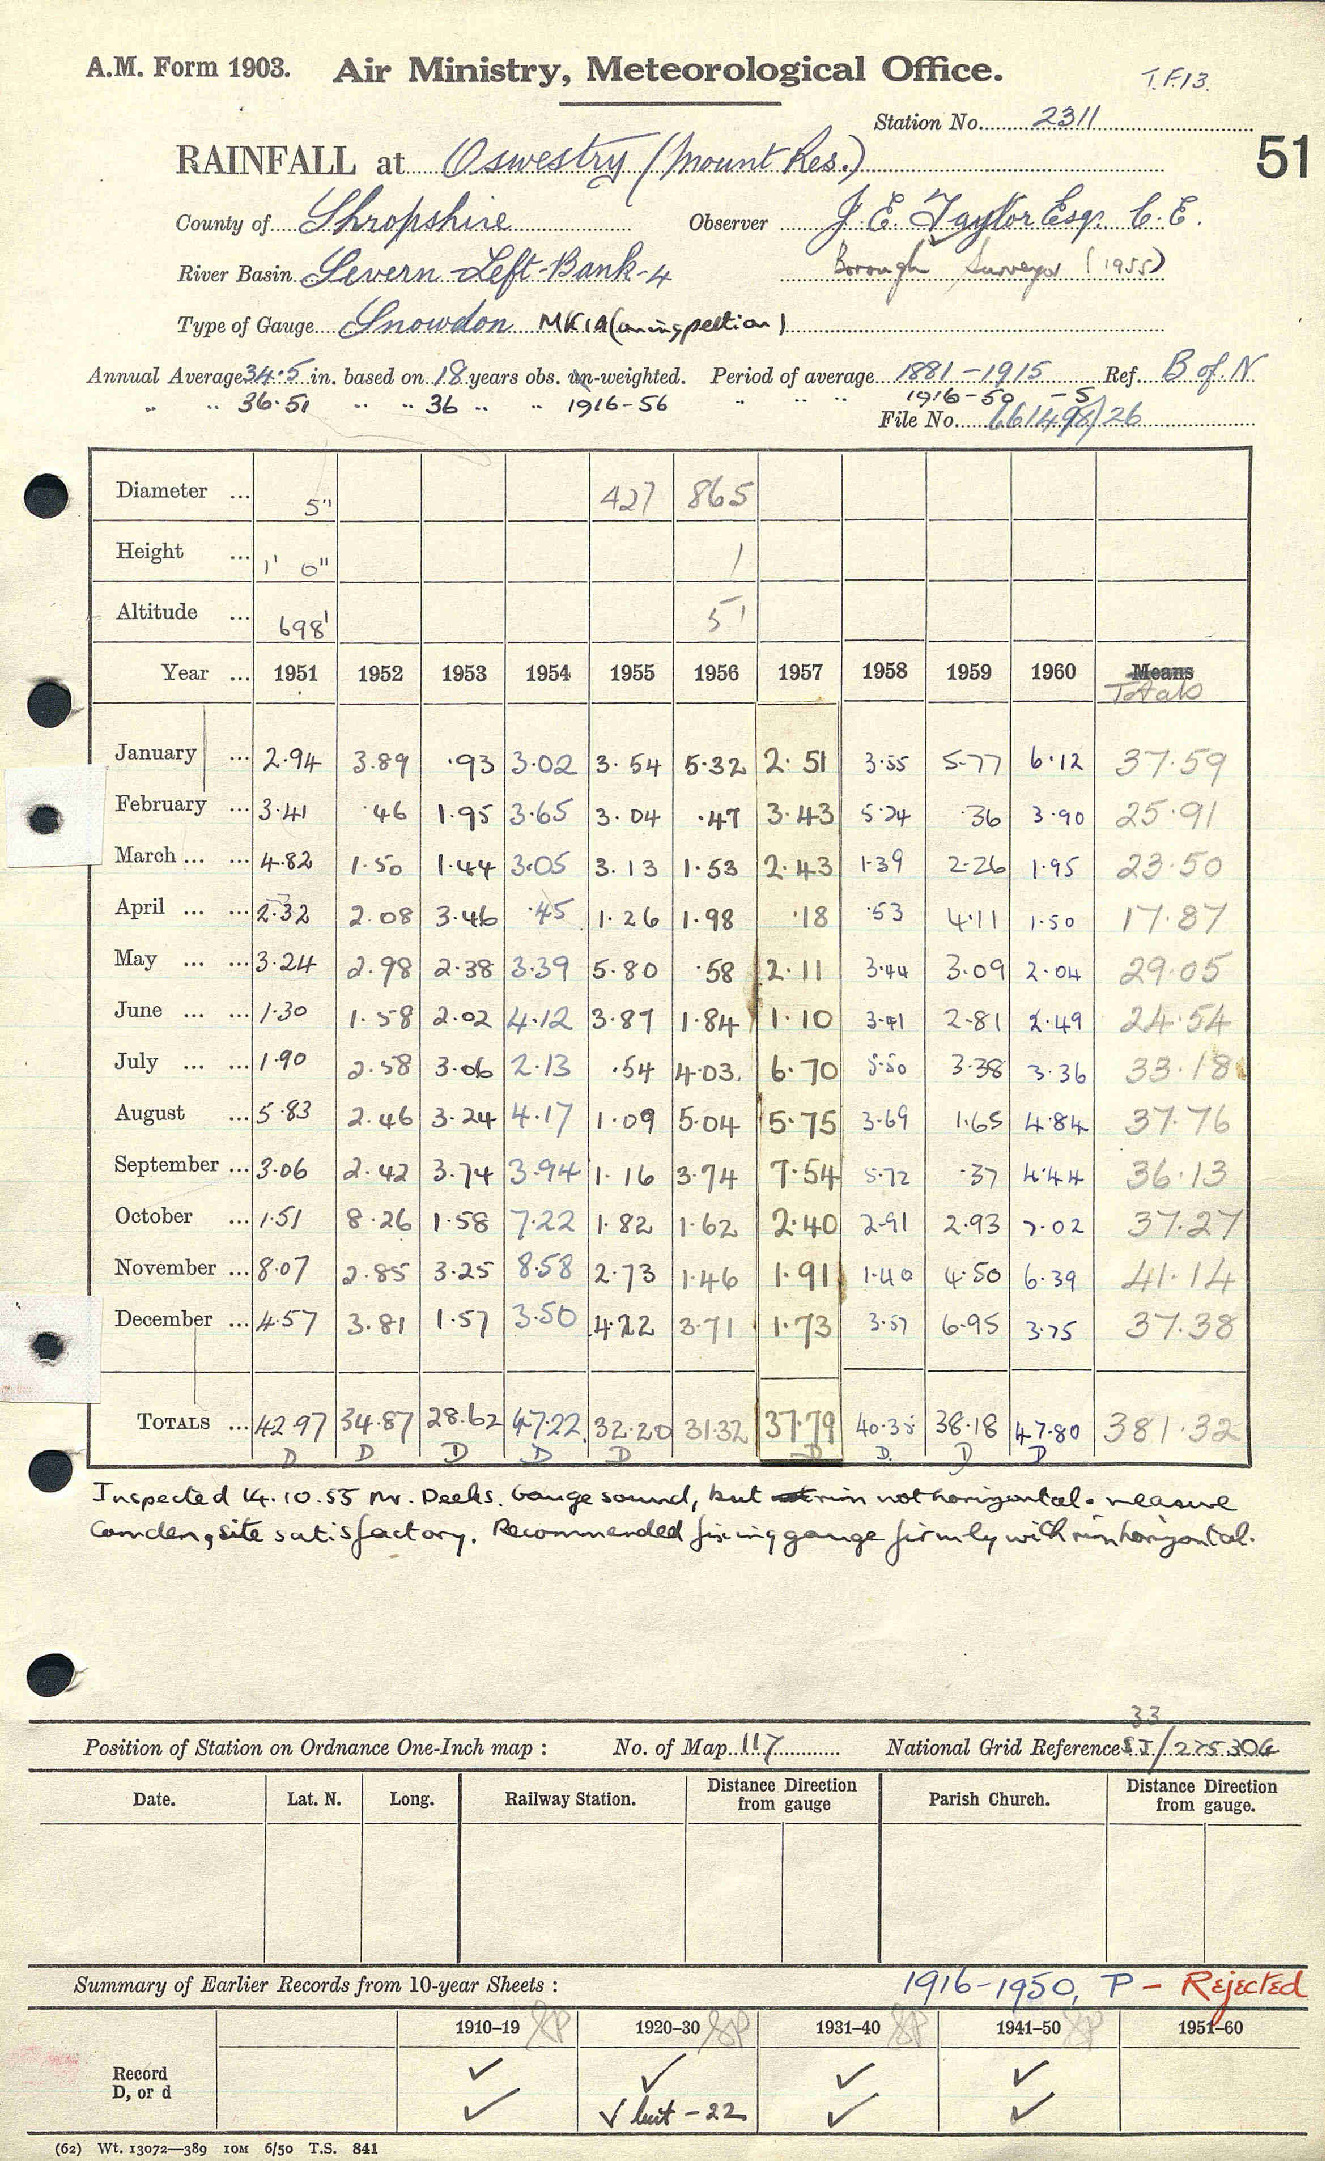 A.M. Form 1903. Air Ministry, Meteorological Office. T.F.13.
Station No. 2311
51
RAINFALL at Oswestry (Mount Res.)
County of Shropshire Observer J. E. Taylor Esqr. C.E.
River Basin Severn-Left-Bank-4 Borough Surveyor (1955)
Type of Gauge Snowdon MK1A (on inspection)
Annual Average 34.5 in. based on 18 years obs. un-weighted. Period of average 1881-1915 Ref. B of N
" " 36.51 " " 36 " " 1916-56 " " " 1916-50
File No. 661498/26
Diameter ... 5" 427 865
Height ... 1' 0" 1
Altitude ... 698' 51
Year ... 1951 1952 1953 1954 1955 1956 1957 1958 1959 1960 Means
Totals
January ... 2.94 3.89 .93 3.02 3.54 5.32 2.51 3.55 5.77 6.12 37.59
February ... 3.41 .46 1.95 3.65 3.04 .47 3.43 5.24 .36 3.90 25.91
March ... ... 4.82 1.50 1.44 3.05 3.13 1.53 2.43 1.39 2.26 1.95 23.50
April ... ... 2.32 2.08 3.46 .45 1.26 1.98 .18 .53 4.11 1.50 17.87
May ... ... 3.24 2.98 2.38 3.39 5.80 .58 2.11 3.44 3.09 2.04 29.05
June ... ... 1.30 1.58 2.02 4.12 3.87 1.84 1.10 3.41 2.81 2.49 24.54
July ... ... 1.90 2.58 3.06 2.13 .54 4.03 6.70 5.50 3.38 3.36 33.18
August ... 5.83 2.46 3.24 4.17 1.09 5.04 5.75 3.69 1.65 4.84 37.76
September ... 3.06 2.42 3.74 3.94 1.16 3.74 7.54 5.72 .37 4.44 36.13
October ... 1.51 8.26 1.58 7.22 1.82 1.62 2.40 2.91 2.93 7.02 37.27
November ... 8.07 2.85 3.25 8.58 2.73 1.46 1.91 1.40 4.50 6.39 41.14
December ... 4.57 3.81 1.57 3.50 4.22 3.71 1.73 3.57 6.95 3.75 37.38
TOTALS ... 42.97 34.87 28.62 47.22 32.20 31.32 37.79 40.35 38.18 47.80 381.32
D D D D D D D D D
Inspected 14.10.55 Mr. Deeks. Gauge sound, but rim not horizontal. measure
Camden, site satisfactory. Recommended fixing gauge firmly with rim horizontal.
33
Position of Station on Ordnance One-Inch map : No. of Map 117 National Grid Reference SJ/275306
Date. Lat. N. Long. Railway Station. Distance from gauge Direction Parish Church. Distance from gauge. Direction
Summary of Earlier Records from 10-year Sheets : 1916-1950, P - Rejected
1910–19 1920–30 1931–40 1941–50 1951–60
Record ✓ ✓ ✓ ✓
D, or d ✓ ✓ but -22 ✓ ✓
(62) Wt. 13072—389 10M 6/50 T.S. 841